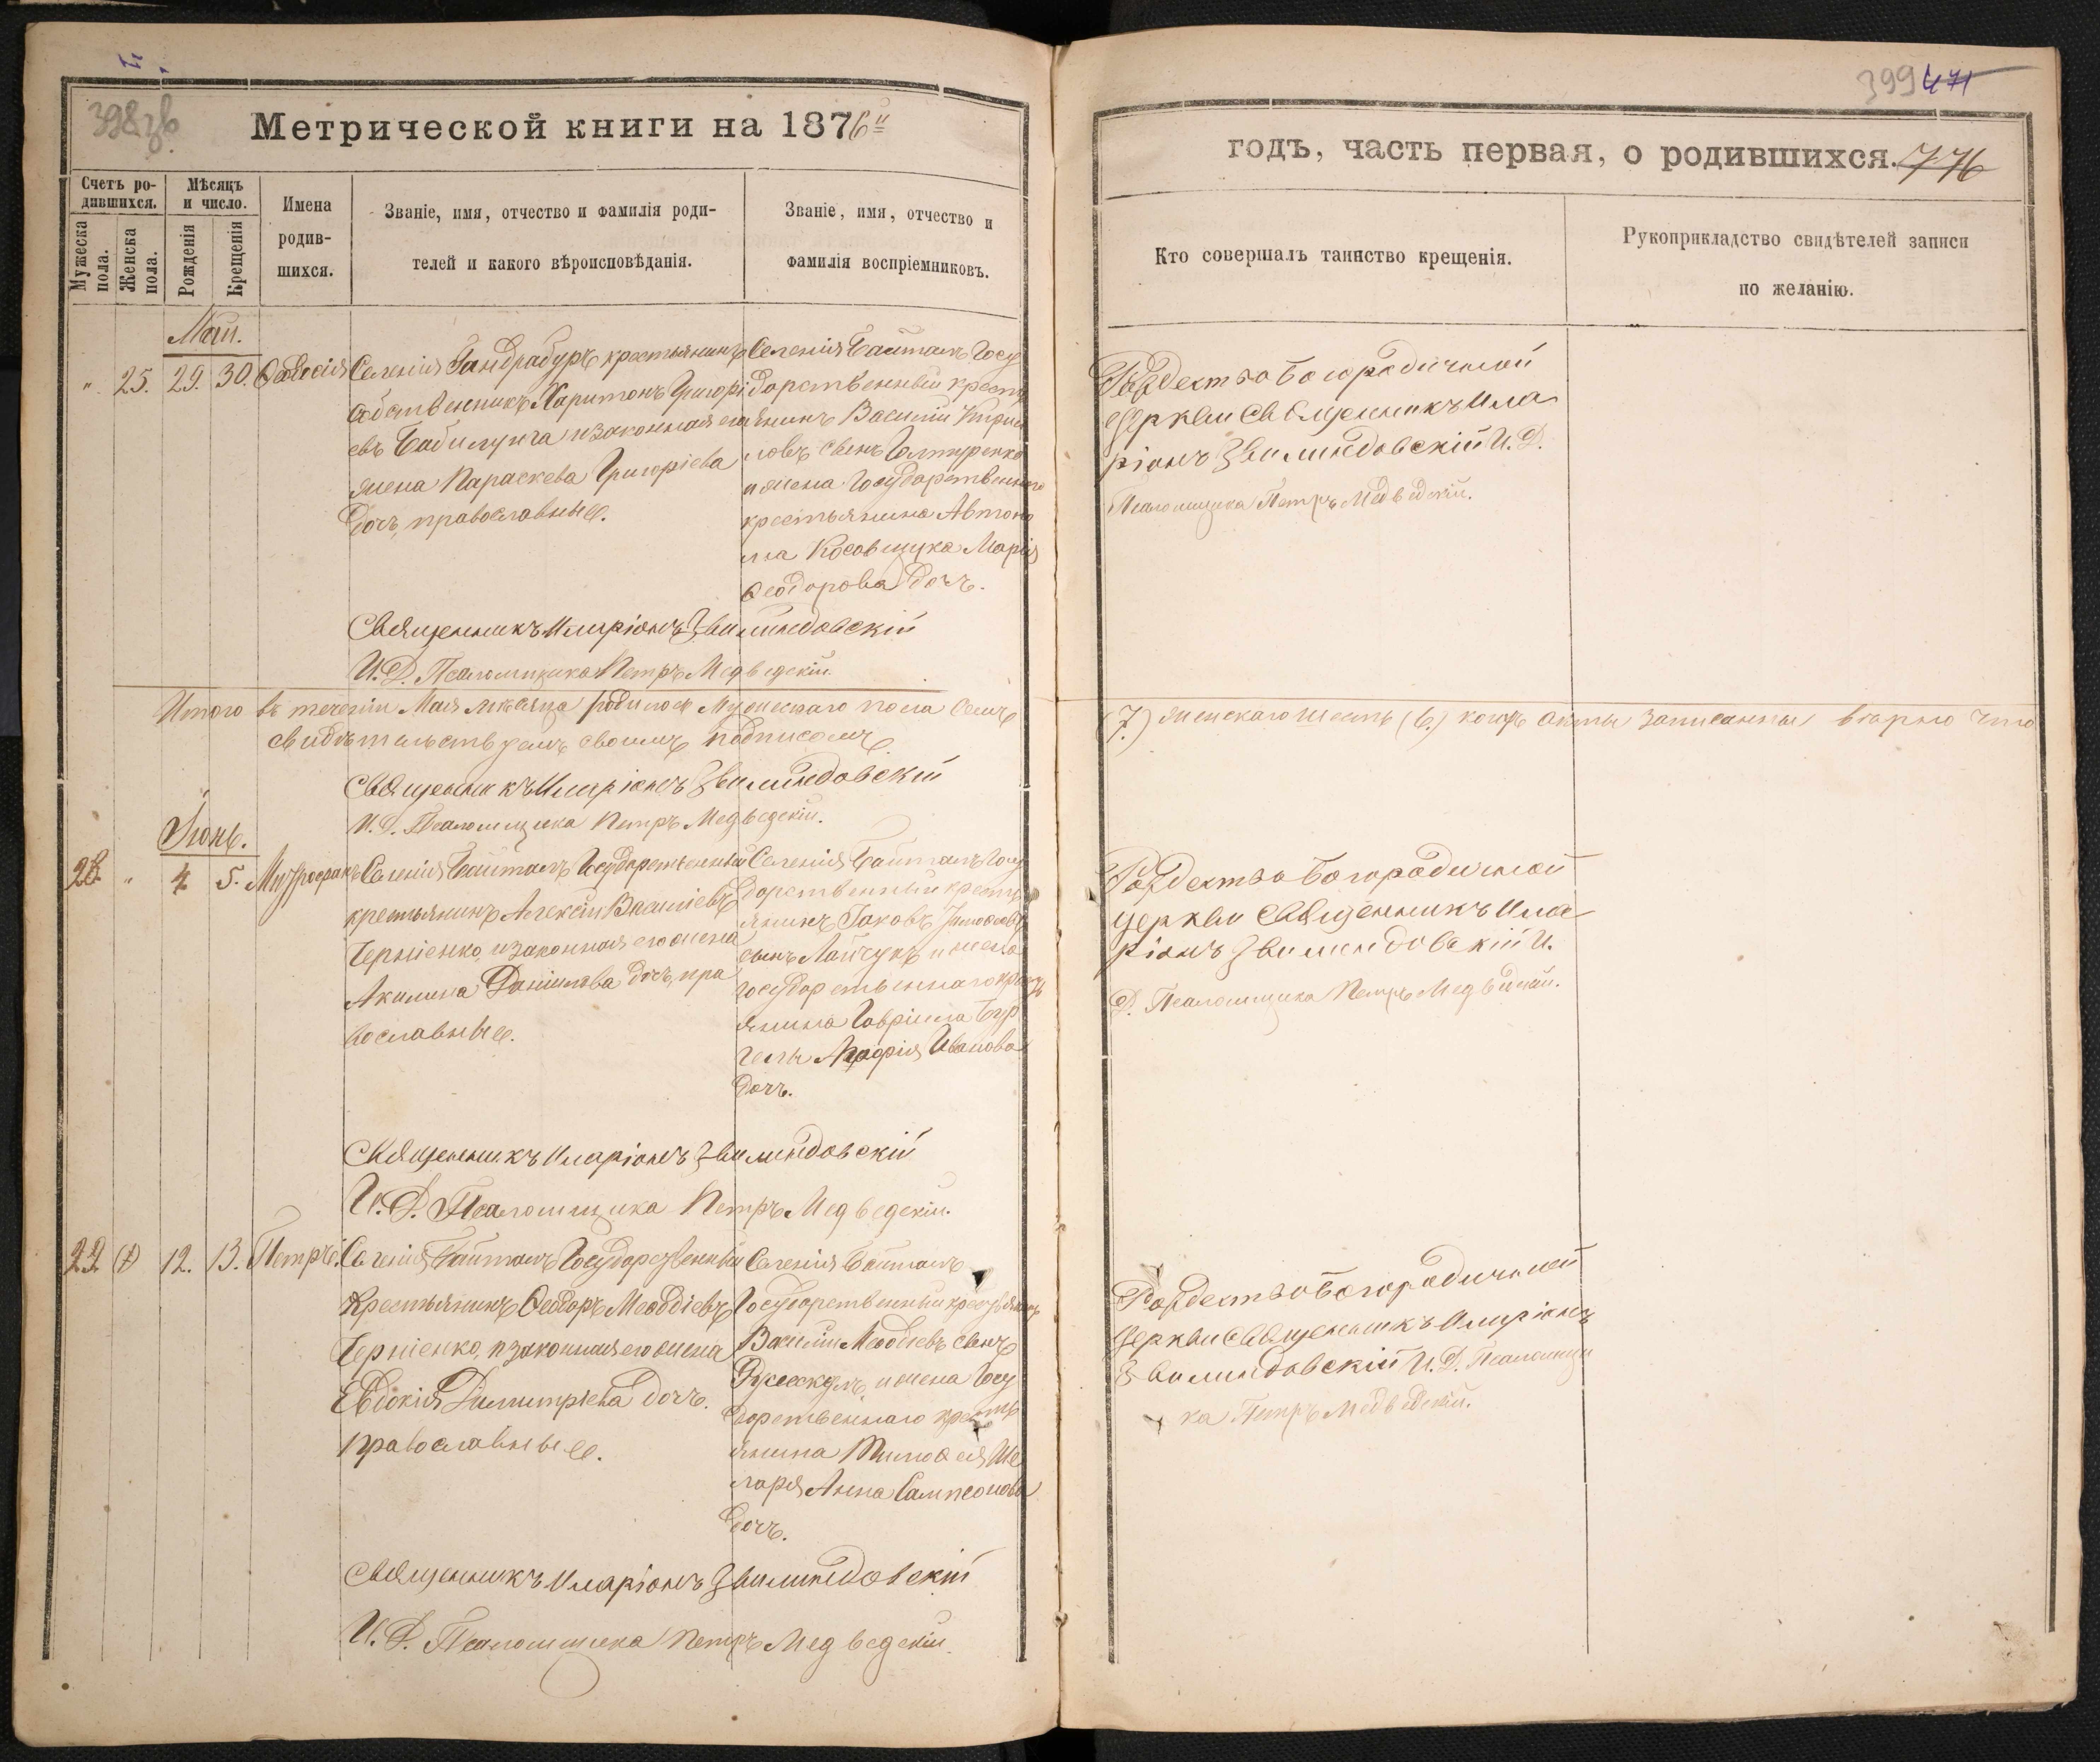 398 зв
Метрической книги на 1876й
Счетъ ро-
дившихся.
Мѣсяцъ
и число.
Мужеска
пола.
Женска
пола.
Рожденія
Крещенія
Имена
родив-
шихся.
Званіе, имя, отчество и фамилія роди-
телей и какого вѣроисповѣданія.
Званіе, имя, отчество и
фамилія воспріемниковъ.
Май.
" 25. 29. 30. Феодосія
Селенія Гандрабуръ крестьянинъ
собственникъ Харитонъ Григорі
евъ Бабилунга и законная его
жена Параскева Григоріева
дочь, православные.
Селенія Байталъ Госу
дарственный кресть
янинъ Василій Кирил
ловъ сынъ
и жена Государственнаго
крестьянина Автоно
ма Косовщука Марія
Феодорова дочь.
Священникъ Иларіонъ Звилиндовскій
И. Д. Псаломщика Петръ Медведскій.
Итого въ теченіи Мая мѣсяца родилось Мужескаго пола семь
свидѣтельствуемъ своимъ подписомъ
Священникъ Иларіонъ Звилиндовскій
И. Д. Псаломщика Петръ Медведскій.
Іюнь.
28. " 4. 5. Митрофанъ
Селенія Байталъ Государственный
крестьянинъ Алексій Василіевъ
Черніенко, и законная его жена
Акилина Даніилова дочь, пра
вославные.
Селенія Байталъ Госу
дарственный кресть
янинъ Іаковъ Тимофеевъ
сынъ Лайчукъ и жена
государственнаго кресть
янина Гавріила Бур
Агафія Иванова
дочь.
Священникъ Иларіонъ Звилиндовскій
И. Д. Псаломщика Петръ Медведскій.
29. 12. 13. Петръ.
Селенія Байталъ Государственный
Крестьянинъ Феодоръ Мефодіевъ
Черніенко, и законная его жена
Евдокія Димитріева дочь.
православные.
Селенія Байталъ
Государственный крестьянинъ
Василій Мефодіевъ сынъ
и жена Госу
дарственнаго кресть
янина Тимофея Ше
ларя Анна Сампсонова
дочь.
Священникъ Иларіонъ Звилиндовскій
И. Д. Псаломщика Петръ Медведскій.
399 471
годъ, часть первая, о родившихся. 776
Кто совершалъ таинство крещенія.
Рукоприкладство свидѣтелей записи
по желанію.
Рождество Богородичной
церкви Священникъ Ила
ріонъ Звилиндовскій И. Д.
Псаломщика Петръ Медведскій.
(7.) женскаго шесть (6.) акты записанны вѣрно что
Рождество Богородичной
церкви Священникъ Ила
ріонъ Звилиндовскій И.
Д. Псаломщика Петръ Медведскій.
Рождество Богородичной
церкви Священникъ Иларіонъ
Звилиндовскій И. Д. Псаломщи
ка Петръ Медведскій.